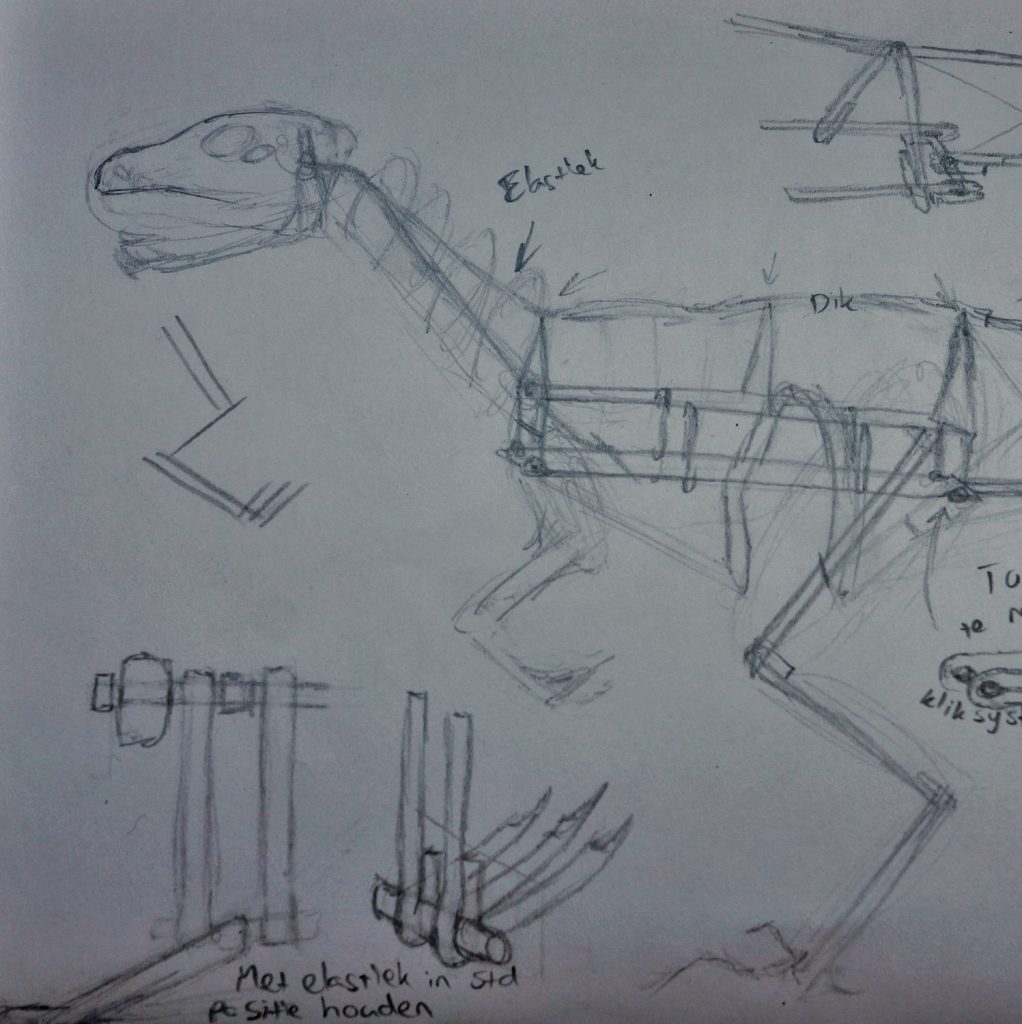 Elastiek
Dik
te
klik sys
Met elastiek in std
positie houden